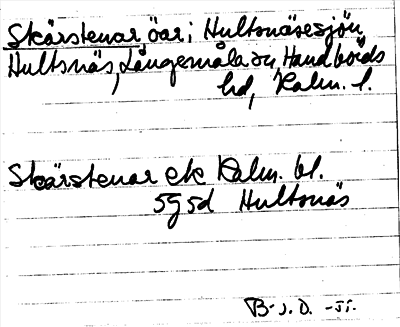 Skärstenar öar i Hultsnäsesjön,
Hultsnäs, Långemåla sn, Handbörds
hd, Kalm. l.
Skärstenar ek Kalm. bl.
5g5d Hultsnäs
B-J.O. -51.